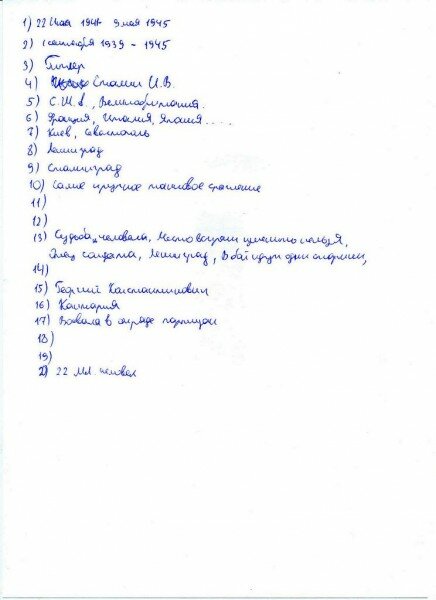 1) 22 июня 1941 9 мая 1945
2) 1 сентября 1939 - 1945
3) Гитлер
4) Сталин И.В.
5) С.Ш.А., Великобритания.
6) Франция, Италия, Япония ....
7) Киев, Севастополь
8) Ленинград
9) Сталинград
10) Самое крупное танковое сражение
11)
12)
13) Судьба человека, Место встречи изменить нельзя,
Отец солдата, Ленинград, В бой идут одни старики,
14)
15) Георгий Константинович
16) Кантария
17) Воевала в отряде партизан
18)
19)
20) 22 Мл. человек